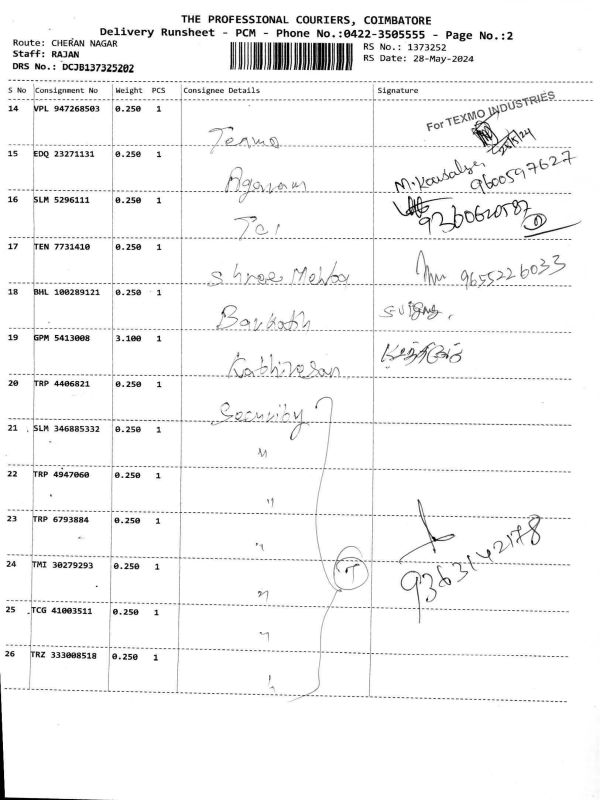 THE PROFESSIONAL COURIERS, COIMBATORE
Delivery Runsheet - PCM - Phone No.:0422-3505555 - Page No.:2
Route: CHERAN NAGAR
Staff: RAJAN
DRS No.: DCJB137325202
RS No.: 1373252
RS Date: 28-May-2024
S No Consignment No Weight PCS Consignee Details Signature
14 VPL 947268503 0.250 1 Texmo
For TEXMO INDUSTRIES
28/5/24
15 EDQ 23271131 0.250 1 Agaram M. Kausalya 9600597627
16 SLM 5296111 0.250 1 TCI 9360620587
17 TEN 7731410 0.250 1 Shree Mehta 9655226033
18 BHL 100289121 0.250 1 Barkath
19 GPM 5413008 3.100 1 Kathiresan
20 TRP 4406821 0.250 1 Security
21 SLM 346885332 0.250 1 "
22 TRP 4947060 0.250 1 "
23 TRP 6793884 0.250 1 "
24 TMI 30279293 0.250 1 " 9363142178
25 TCG 41003511 0.250 1 "
26 TRZ 333008518 0.250 1 "